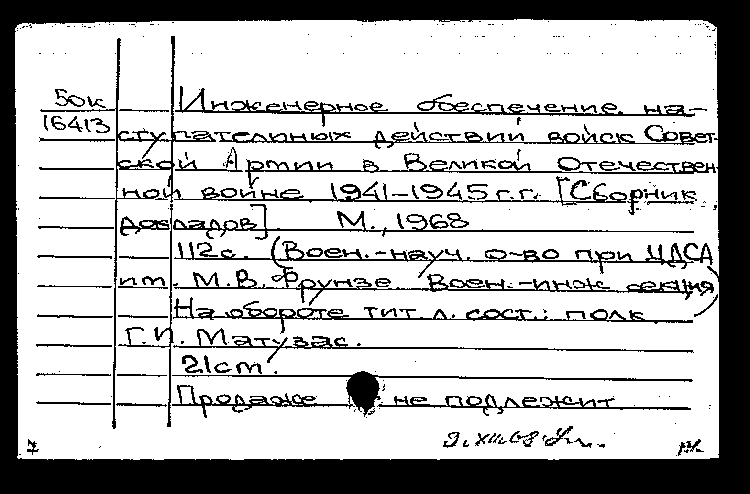 50к
16413
Инженерное обеспечение на-
ступательных действий войск Совет-
ской Армии в Великой Отечествен-
ной войне 1941-1945 г.г. [Сборник
докладов] М., 1968
112с. (Воен.-науч. о-во при ЦДСА
им. М.В. Фрунзе. Воен.-инж секция)
На обороте тит. л. сост.: полк.
Г.П. Матузас.
21см.
Продаже не подлежит
7 9.XII.68